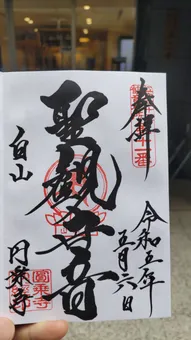 奉拝
聖観世音
令和五年
五月六日
白山
円乗寺
圓乗寺